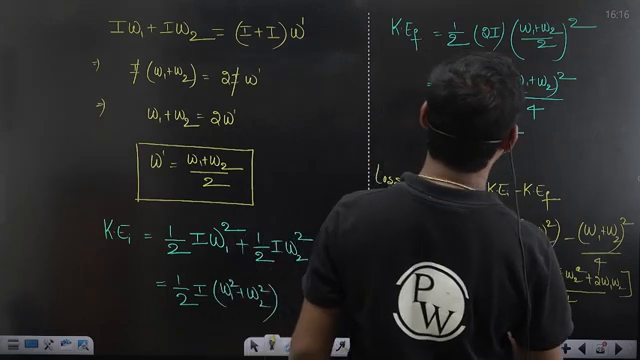 16:16
Iω₁ + Iω₂ = (I+I)ω'
⇒ I(ω₁+ω₂) = 2Iω'
⇒ ω₁+ω₂ = 2ω'
ω' = ω₁+ω₂/2
K.Eᵢ = 1/2 Iω₁² + 1/2 Iω₂²
= 1/2 I(ω₁²+ω₂²)
K.E_f = 1/2 (2I) (ω₁+ω₂/2)²
=
+ω₂)²/4
Loss =
K.Eᵢ - K.E_f
²) - (ω₁+ω₂)²/4
ω₂² + 2ω₁ω₂]
PW